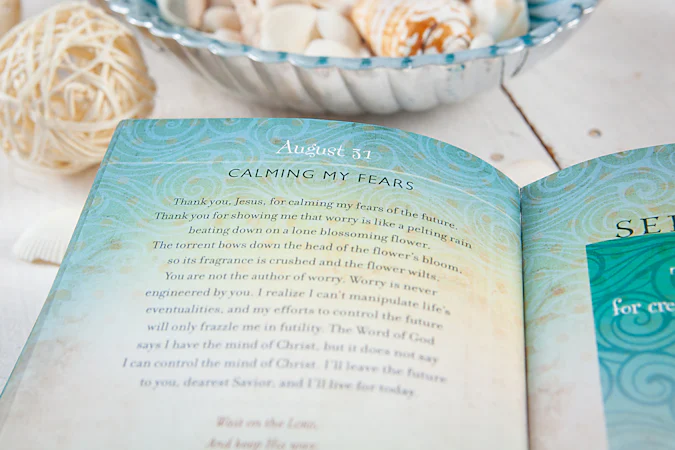 August 31
CALMING MY FEARS
Thank you, Jesus, for calming my fears of the future.
Thank you for showing me that worry is like a pelting rain
beating down on a lone blossoming flower.
The torrent bows down the head of the flower's bloom,
so its fragrance is crushed and the flower wilts.
You are not the author of worry. Worry is never
engineered by you. I realize I can't manipulate life's
eventualities, and my efforts to control the future
will only frazzle me in futility. The Word of God
says I have the mind of Christ, but it does not say
I can control the mind of Christ. I'll leave the future
to you, dearest Savior, and I'll live for today.
Wait on the LORD,
And keep His way,
SE
for cre